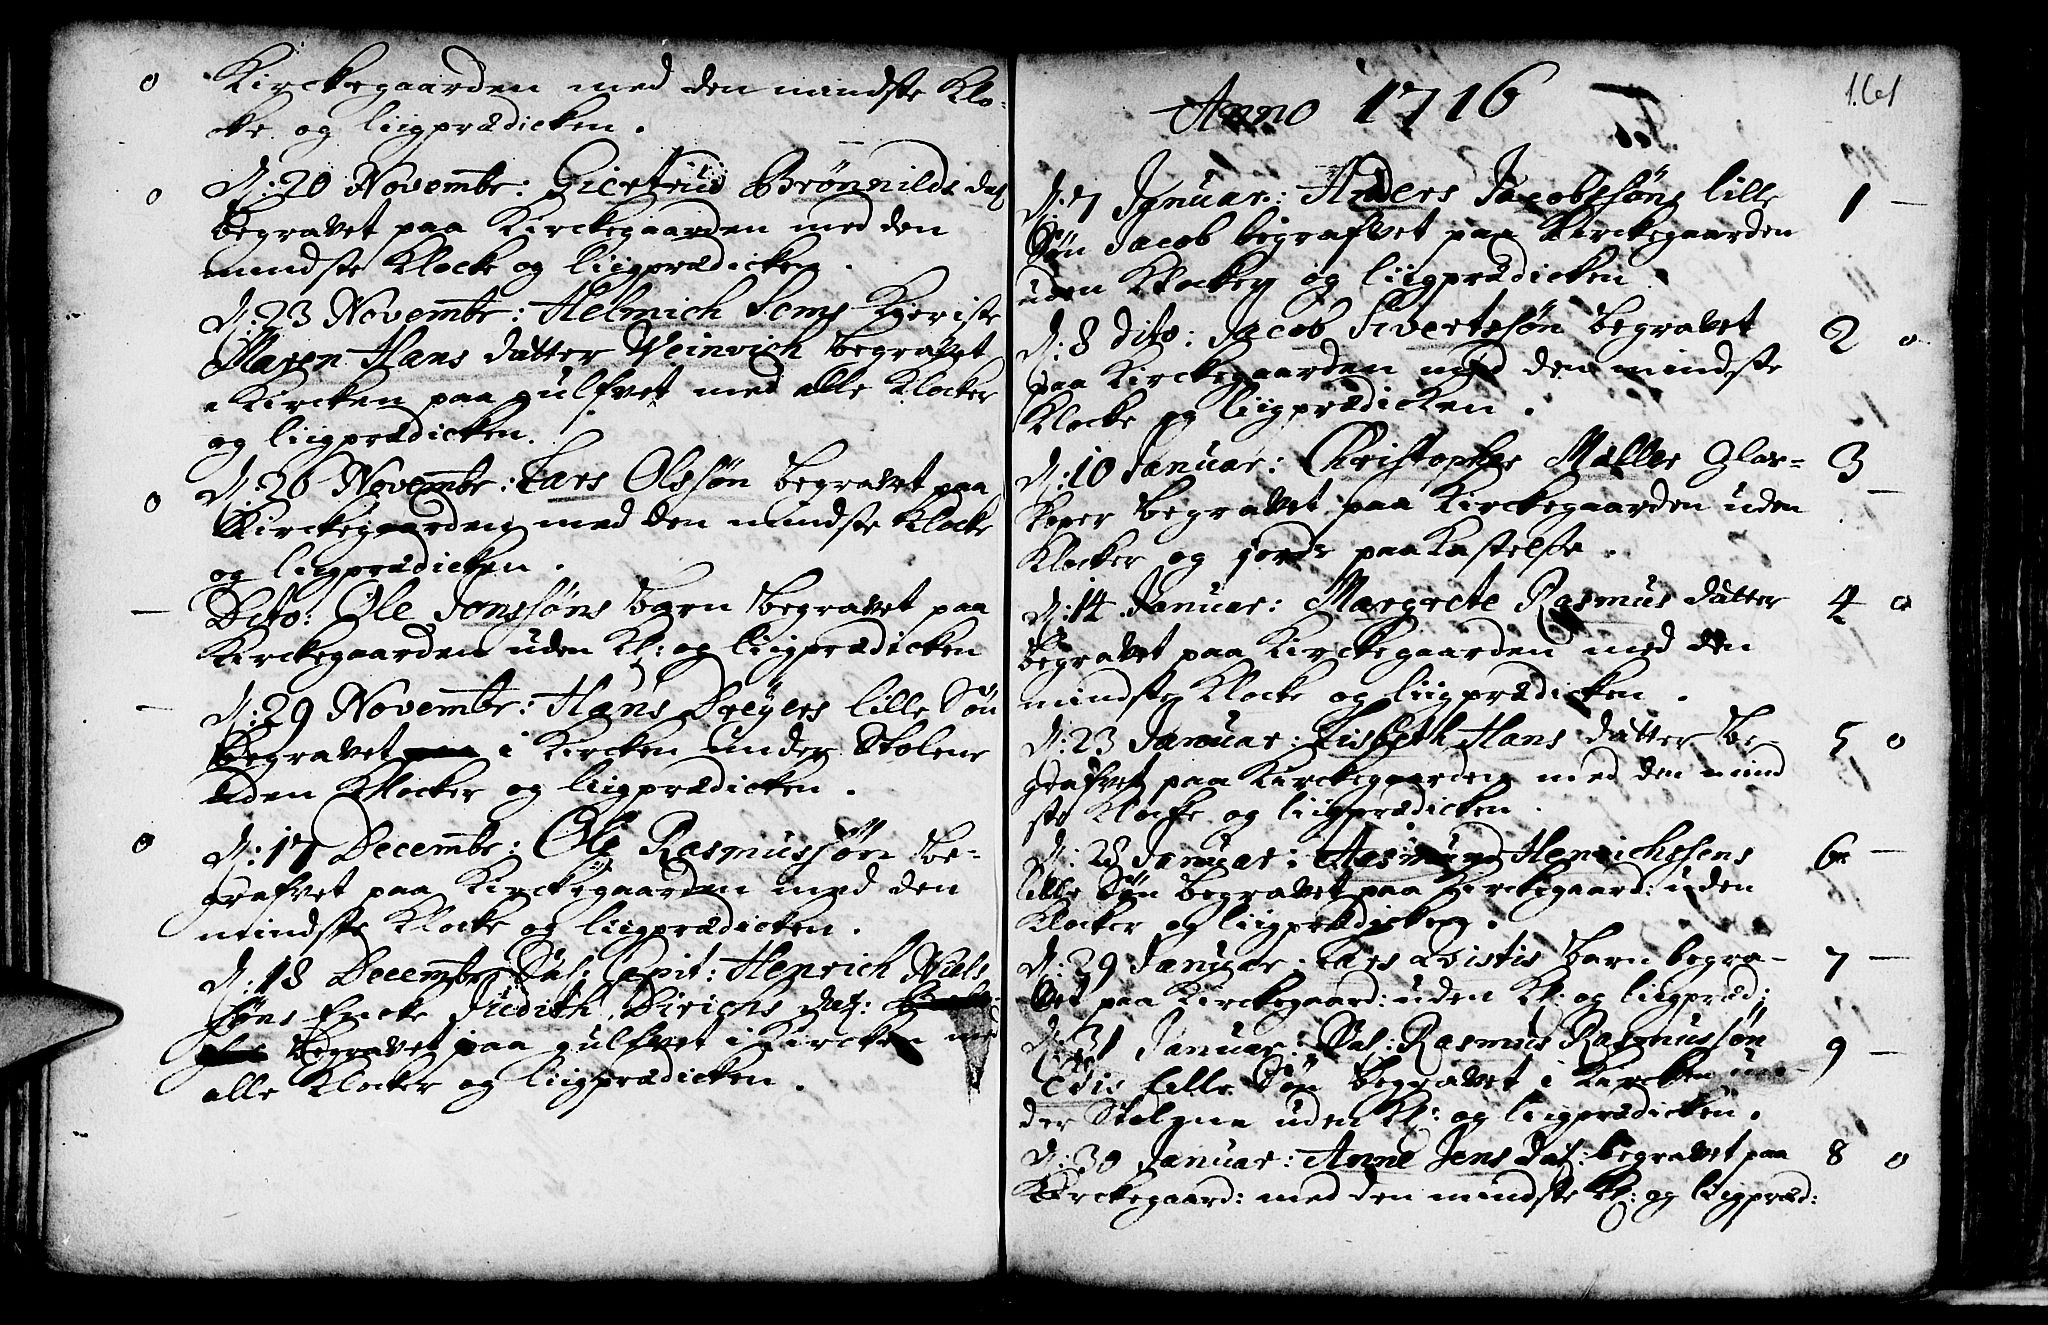 o Kirckegaarden med den mindste Klo-
cke og liigprædicken.
o D: 20 Novembr: Giertrud Brønnilds dat
begravet paa Kirckegaarden med den
mindste Klocke og liigprædicken.
D: 23 Novembr: Helmich Soms Kjeriste
Maren Hans datter Weinvich begravet
i Kircken paa gulfvet med alle Klocker
og liigprædicken.
o D: 26 Novembr: Lars Olssøn begravet paa
Kirckegaarden med den mindste Klocke
og liigprædicken.
— Dito: Ole Jonssøns barn begravet paa
Kirckegaarden uden Kl: og liigprædicken
— D: 29 Novembr: Hans Dreyers lille Søn
begravet paa i Kircken under Stolene
uden Klocker og liigprædicken.
o D: 17 Decembr: Ole Rasmussøn be-
grafvet paa Kirckegaarden med den
mindste Klocke og liigprædicken.
D: 18 Decembr Sal: Capit: Henrich Niels
søns Encke Judith Dirichs dat:
begravet paa gulfvet i Kircken med
alle Klocker og liigprædicken.
161
Anno 1716
D: 7 Januar: Anders Jacobsøns lille 1 —
Søn Jacob begrafvet paa Kirckegaarden
uden Klocker og liigprædicken.
D: 8 dito: Jacob Sivertsøn begravet 2 o
paa Kirckegaarden med den mindste
Klocke og liigprædicken.
D: 10 Januar: Christopher Møller Glar- 3 —
begravet paa Kirckegaarden uden
Klocker og jords paakastelse.
D: 14 Januar: Margrete Rasmus datter 4 o
begravet paa Kirckegaarden med den
mindste Klocke og liigprædicken.
D: 23 Januar: Lisbeth Hans datter be- 5 o
grafvet paa Kirckegaarden med den mind
ste Klocke og liigprædicken.
D: 28 Januar: Aasmund Henrichssens 6 —
lille Søn begravet paa Kirckegaard: uden
Klocker og liigprædicken.
D: 29 Januar: Lars Qvistis barn begra- 7 —
vet paa Kirckegaard: uden Kl: og liigpræd:
D: 31 Januar: Sal: Rasmus Rasmussøn 9 —
lille Søn begravet i Kircken un-
der Stolene uden Kl: og liigprædicken.
D: 30 Januar: Anne Jens dat: begravet paa 8 o
Kirckegaard: med den mindste Kl: og liigpræd: